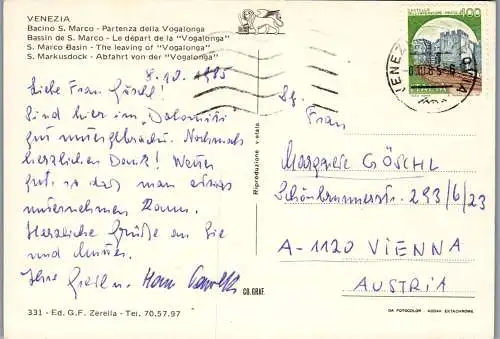 VENEZIA
Bacino S. Marco - Partenza della Vogalonga
Bassin de S. Marco - Le départ de la "Vogalonga"
S. Marco Basin - The leaving of "Vogalonga"
S. Markusdock - Abfahrt von der "Vogalonga"
8.10.1985
Liebe Frau Göschl!
Sind hier im "Dolomiti"
gut untergebracht. Nochmals
herzlichen Dank! Wetter
gut, so daß man etwas
unternehmen kann.
Herzliche Grüße an Sie
und
Ihre
331 - Ed. G.F. Zerella - Tel. 70.57.97
Riproduzione vietata
CO. GRAF.
400
ITALIA
VENEZIA
Frau
Margarete GÖSCHL
Schönbrunnerstr. 293/6/23
A-1120 VIENNA
AUSTRIA
DA FOTOCOLOR KODAK EKTACHROME